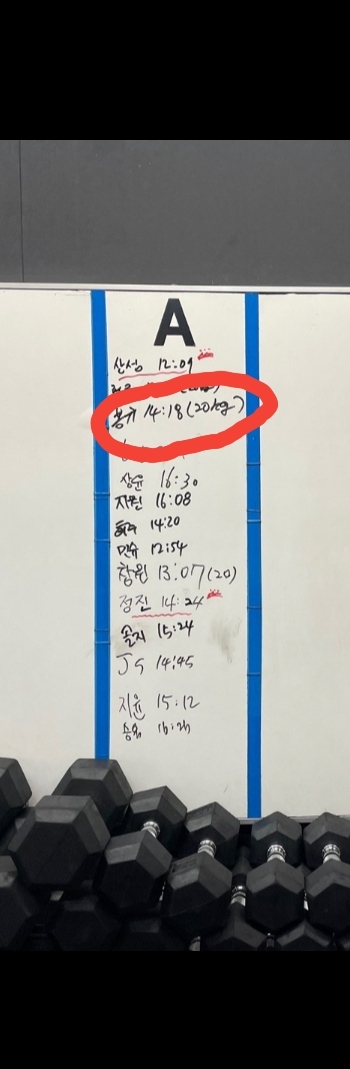 A
산성 12:09
봉규 14:18 (20kg)
상윤 16:30
지민 16:08
14:20
민슈 12:54
창원 13:07 (20)
정진 14:24
솔지 15:24
JS 14:45
지윤 15:12
승용